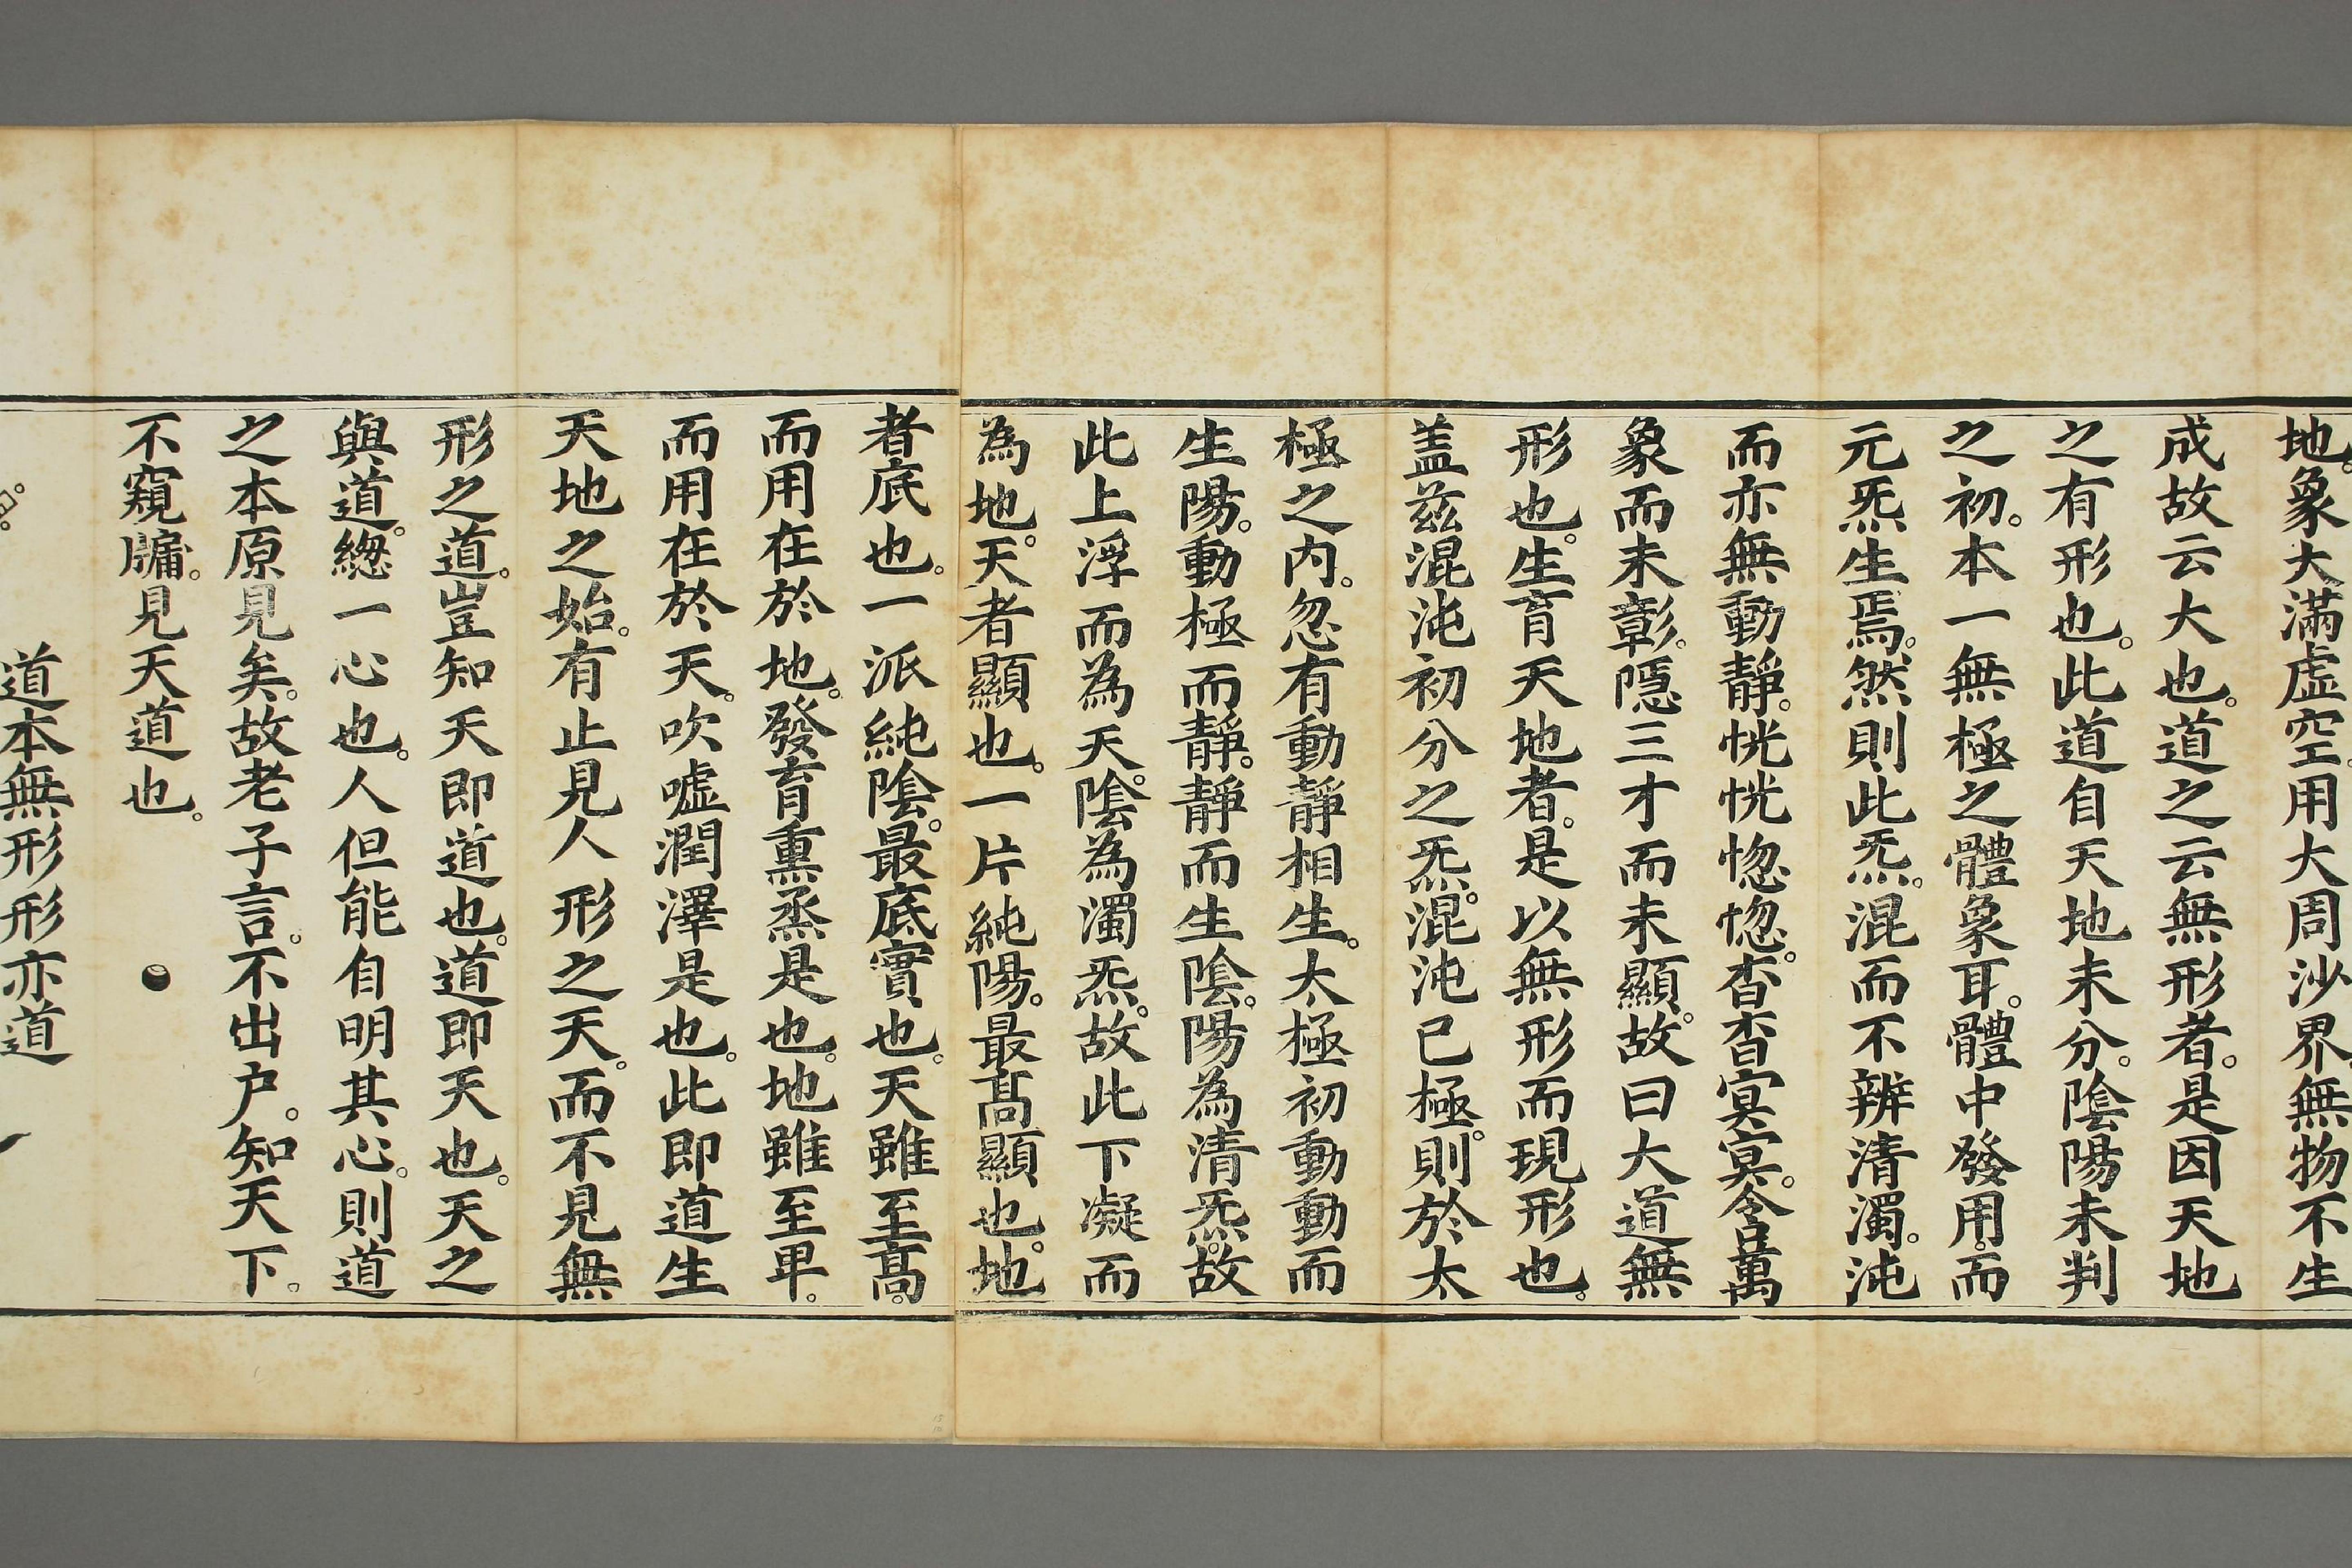 地。象大滿虛空。用大周沙界。無物不生
成。故云大也。道之云無形者。是因天地
之有形也。此道自天地未分。陰陽未判
之初。本一無極之體象耳。體中發用。而
元炁生焉。然則此炁。混而不辨清濁。沌
而亦無動靜。恍恍惚惚。杳杳冥冥。含萬
象而未彰。隱三才而未顯。故曰大道無
形也。生育天地者。是以無形而現形也。
盖茲混沌初分之炁。混沌已極。則於太
極之內。忽有動靜相生。太極初動動而
生陽。動極而靜。靜而生陰。陽為清炁。故
此上浮而為天。陰為濁炁。故此下凝而
為地。天者顯也。一片純陽。最髙顯也。地
者底也。一派純陰。最底實也。天雖至髙。
而用在於地。發育熏烝是也。地雖至卑。
而用在於天。吹噓潤澤是也。此即道生
天地之始。有止見人形之天。而不見無
形之道。豈知天即道也。道即天也。天之
與道。總一心也。人但能自明其心。則道
之本原見矣。故老子言。不出户。知天下。
不窺牖。見天道也。
道本無形形亦道